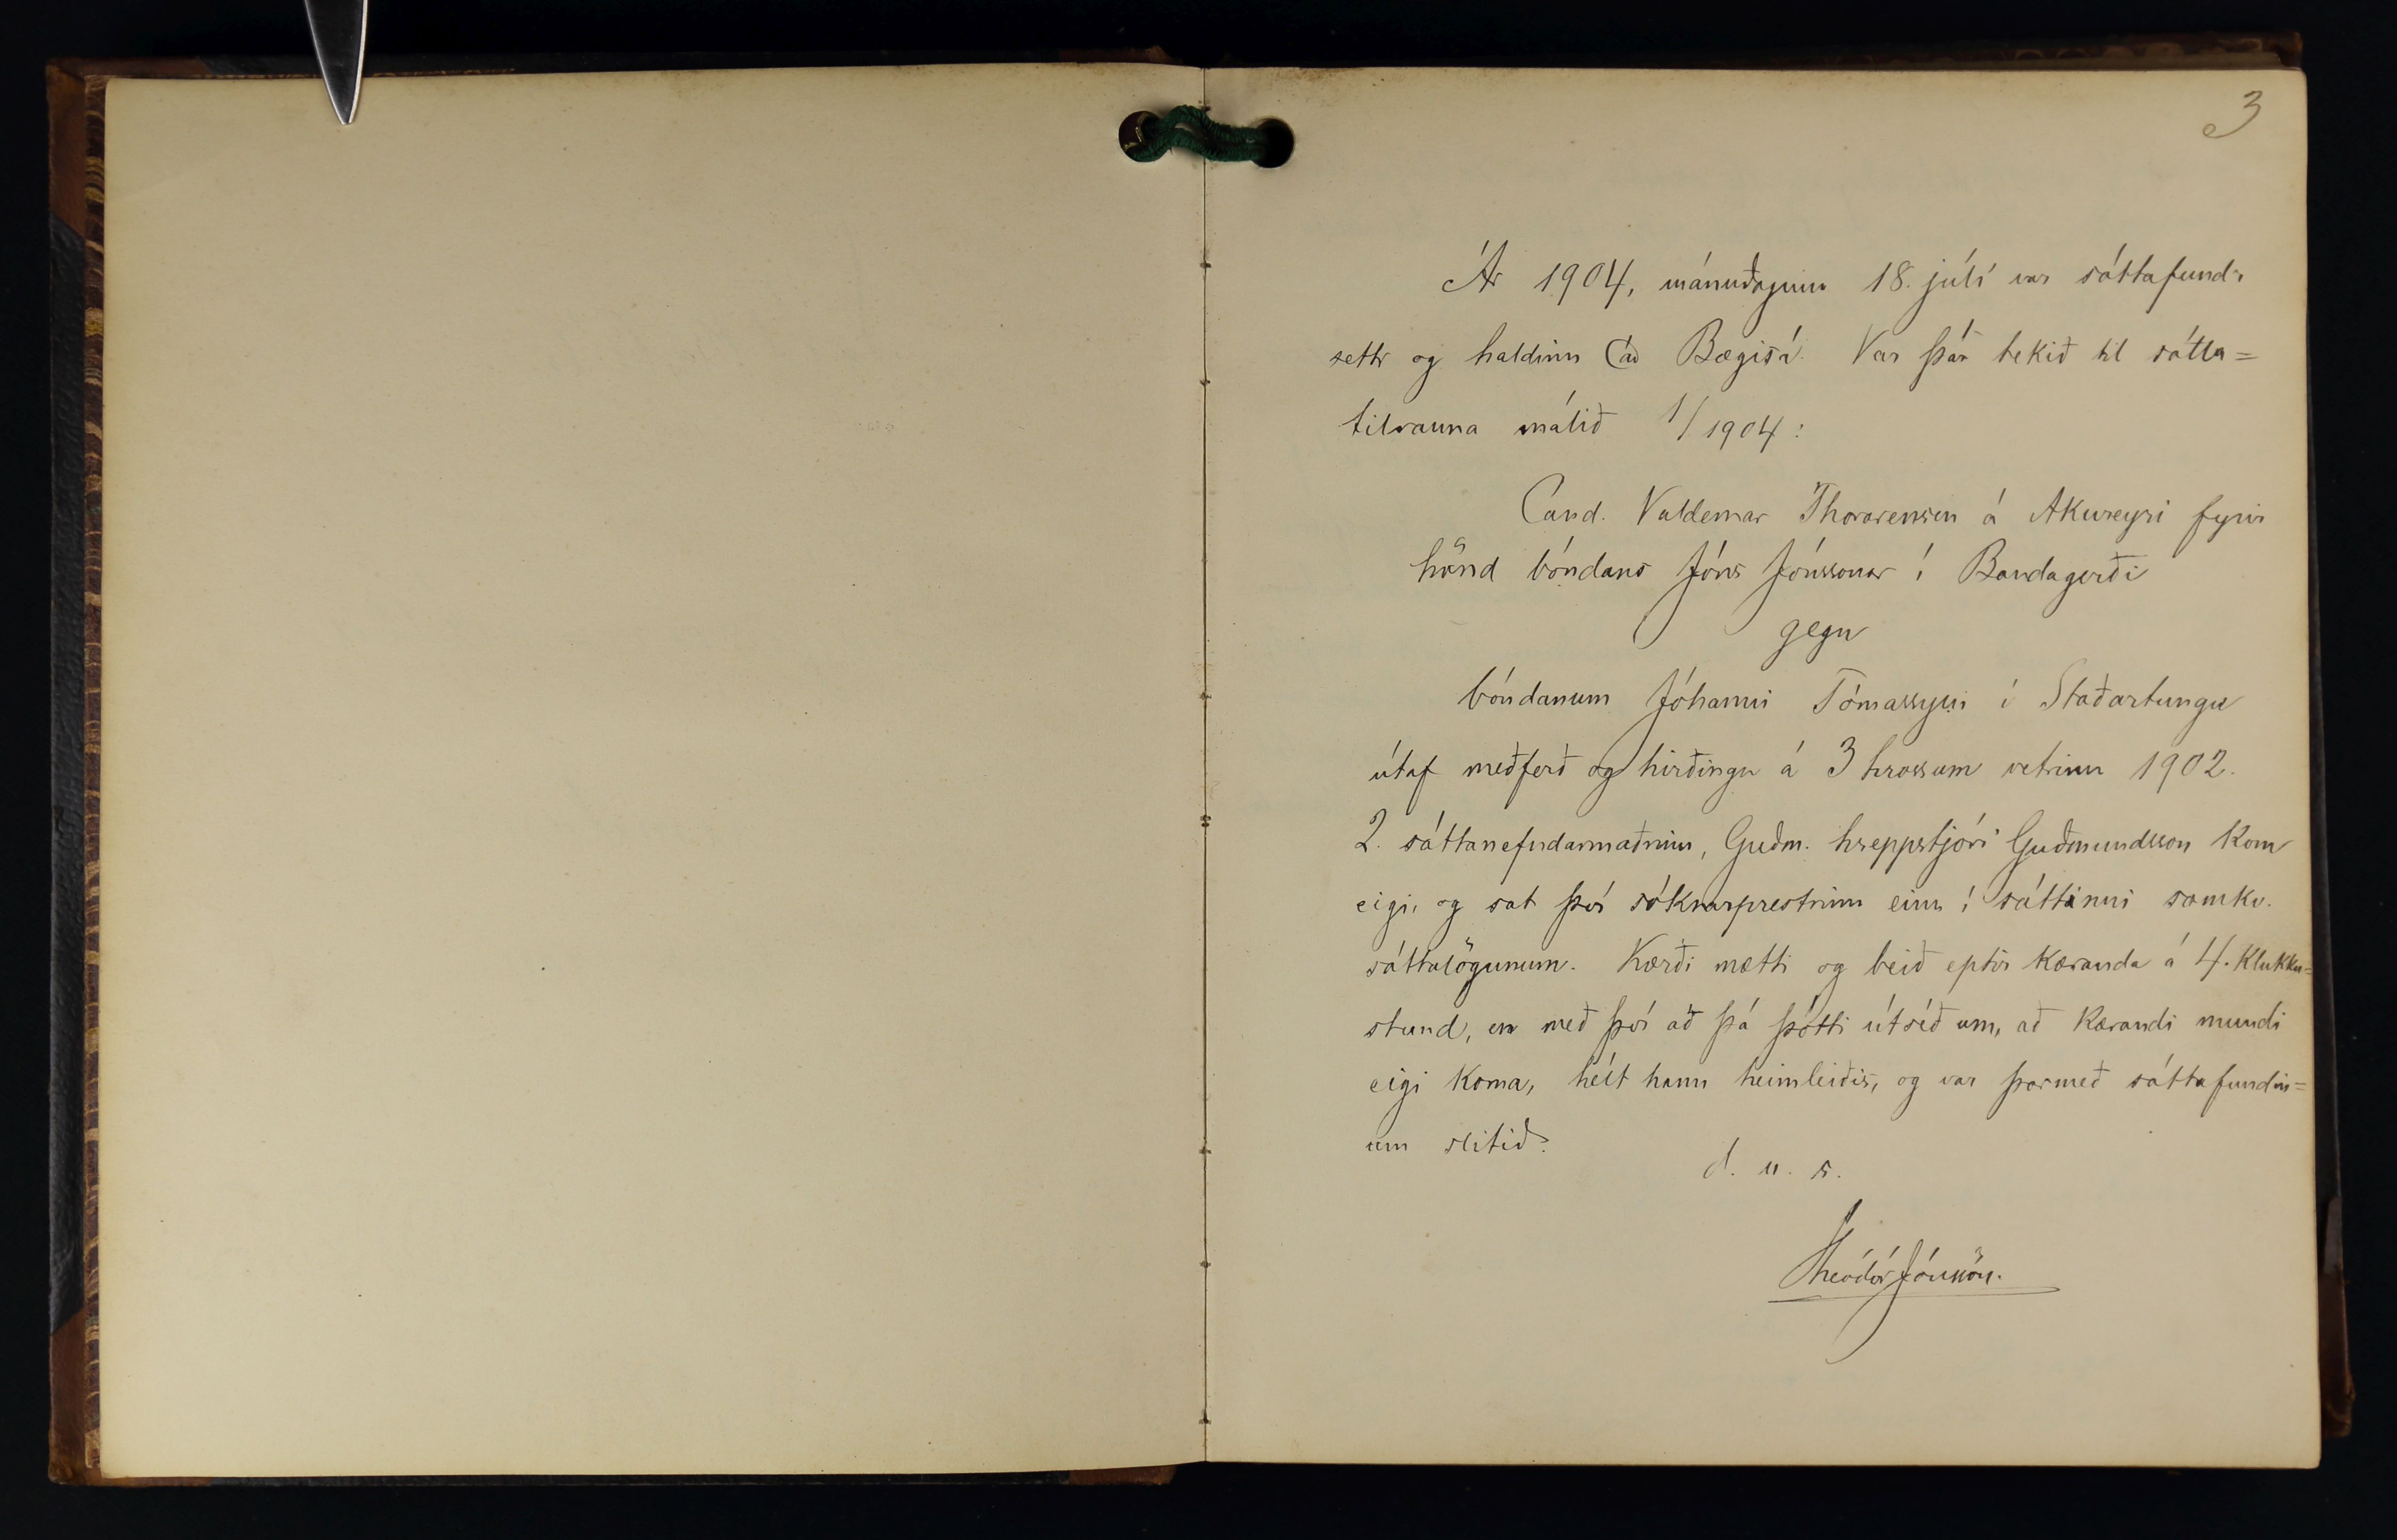 3
Ár 1904, mánudaginn 18. júlí var sáttafundr
settr og haldinn að Bægisá. Var þár tekið til sátta=
tilrauna málið 1/1904:
Cand. Valdemar Thorarensen á Akureyri fyrir
hönd bóndans Jóns Jónssonar í Bandagerði
gegn
bóndanum Jóhanni Tómassyni í Staðartungu
útaf meðferð og hirðingu á 3 hrossum vetrinn 1902.
2. sáttanefndarmaðrinn, Guðm. hreppstjóri Guðmundsson kom
eigi, og sat því sóknarprestrinn einn í sáttinni samkv.
sáttalögunum. Kærði mætti og beið eptir kæranda á 4. klukku=
stund, en með því að þá þótti útséð um, að kærandi mundi
eigi koma, hélt hann heimleiðis, og var þarmeð sáttafundin=
um slitið.
d. u. s.
Theódór Jónsson.